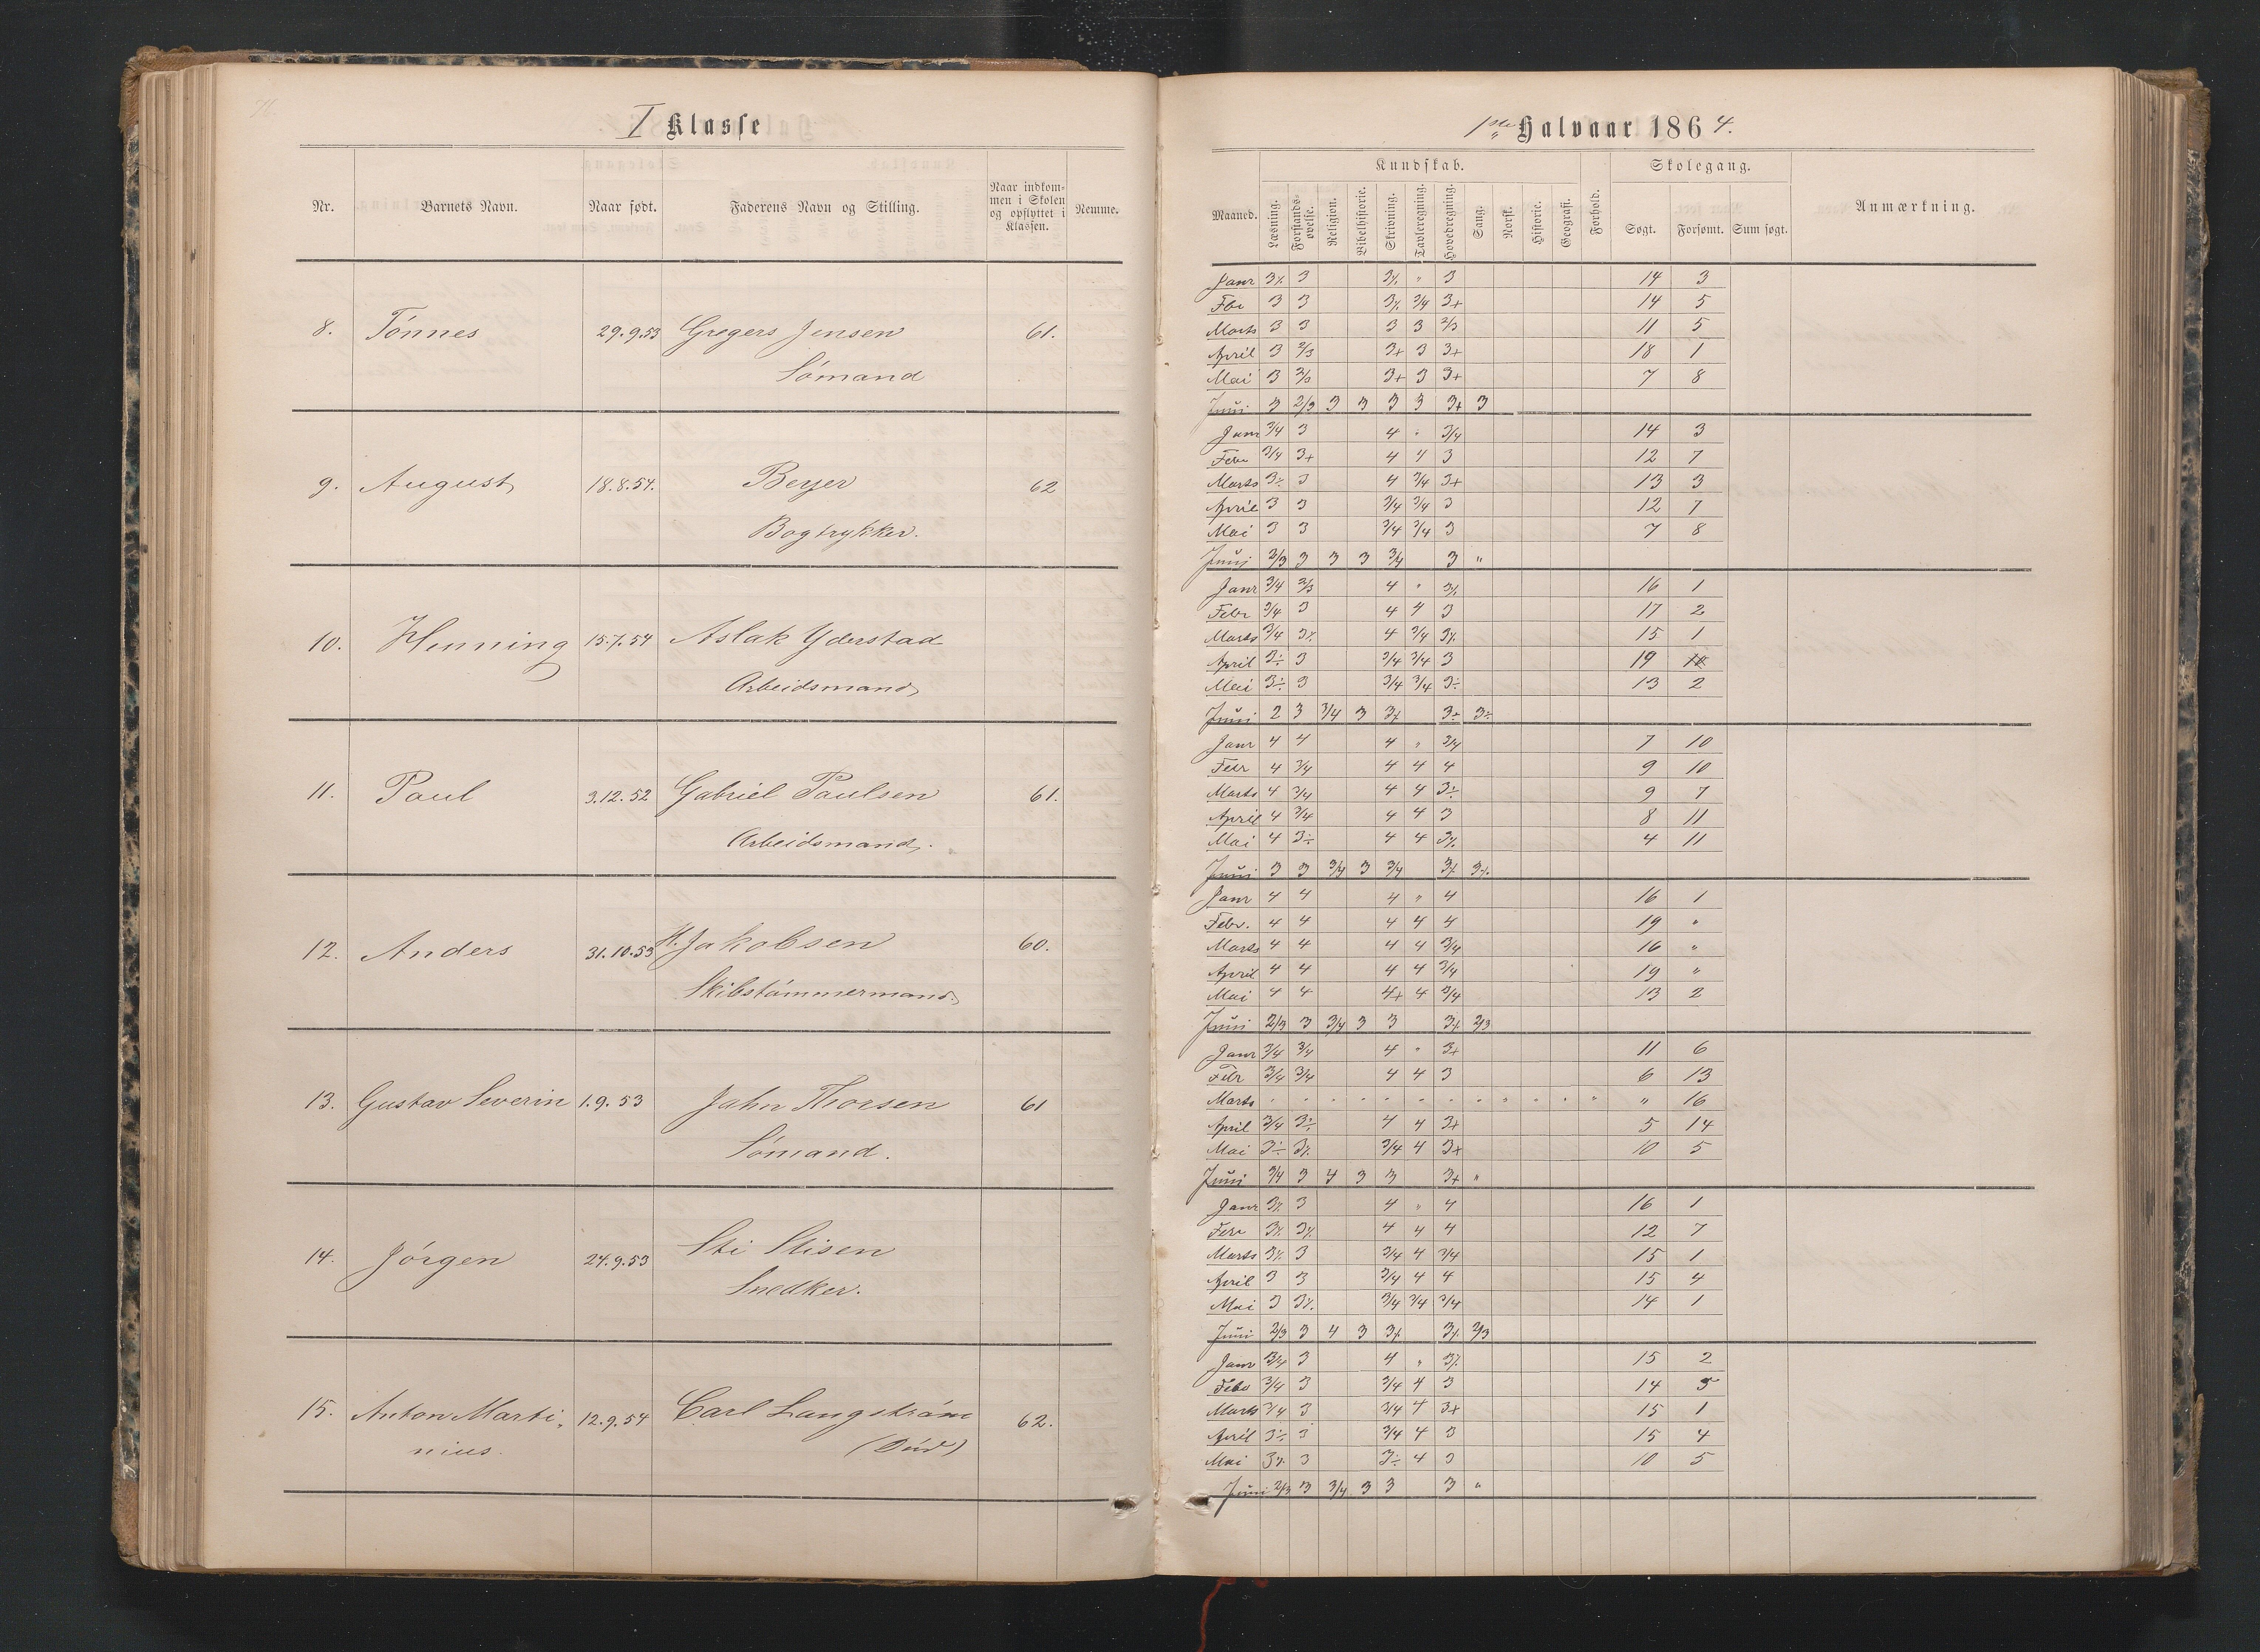 I Klasse
Nr. Barnets Navn. Naar født. Faderens Navn og Stilling. Naar indkommen i Skolen og opflyttet i Klassen. Nemme.
8. Tönnes 29.9.53 Gregers Jensen 61.
Sömand
9. August 18.8.54. Beyer 62
Bogtrykker.
10. Henning 15.7.54 Aslak Yderstad
Arbeidsmand
11. Paul 3.12.52 Gabriel Paulsen 61.
Arbeidsmand.
12. Anders 31.10.53 H. Jakobsen 60.
Skibstömmermand.
13. Gustav Severin 1.9.53 John Thorsen 61
Sömand.
14. Jörgen 24.9.53 Sti Stisen
Snedker.
15. Anton Marti- 12.9.54 Carl Langström 62.
nius. (Död)
1ste Halvaar 1864.
Kundskab. Skolegang.
Maaned. Læsning. Forstandsøvelse. Religion. Bibelhistorie. Skrivning. Tavleregning. Hovedregning. Sang. Norsk. Historie. Geografi. Forhold. Søgt. Forsømt. Sum søgt. Anmærkning.
Janr 3% 3 3% " 3 14 3
Fbr 3 3 3% 3/4 3+ 14 5
Marts 3 3 3 3 2/3 11 5
April 3 2/3 3+ 3 3+ 18 1
Mai 3 2/3 3+ 3 3+ 7 8
Juni 3 2/3 3 3 3 3 3+ 3
Janr 3/4 3 4 " 3/4 14 3
Febr 3/4 3+ 4 4 3 12 7
Marts 3% 3 4 3/4 3+ 13 3
April 3 3 3/4 3/4 3 12 7
Mai 3 3 3/4 3/4 3 7 8
Juni 2/3 3 3 3 3/4 3 "
Janr 3/4 2/3 4 " 3% 16 1
Febr 3/4 3 4 4 3 17 2
Marts 3/4 3% 4 3/4 3% 15 1
April 3÷ 3 3/4 3/4 3 19
Mai 3÷ 3 3/4 3/4 3÷ 13 2
Juni 2 3 3/4 3 3% 3+ 3÷
Janr 4 4 4 " 3/4 7 10
Febr 4 3/4 4 4 4 9 10
Marts 4 3/4 4 4 3÷ 9 7
April 4 3/4 4 4 3 8 11
Mai 4 3÷ 4 4 3% 4 11
Juni 3 3 3/4 3 3/4 3% 3%
Janr 4 4 4 " 4 16 1
Febr. 4 4 4 4 4 19 "
Marts 4 4 4 4 3/4 16 "
April 4 4 4 4 3/4 19 "
Mai 4 4 4+ 4 3/4 13 2
Juni 2/3 3 3/4 3 3 3% 2/3
Janr 3/4 3/4 4 " 3+ 11 6
Febr 3/4 3/4 4 4 3 6 13
Marts " " " " " " " " " " " " " 16
April 3/4 3÷ 4 4 3+ 5 14
Mai 3÷ 3% 3/4 4 3+ 10 5
Juni 3/4 3 4 3 3 3+ "
Janr 3% 3 4 " 4 16 1
Febr 3% 3% 4 4 4 12 7
Marts 3% 3 3/4 4 3/4 15 1
April 3 3 3/4 4 4 15 4
Mai 3 3% 3/4 3/4 3/4 14 1
Juni 2/3 3 4 3 3% 3% 2/3
Janr 3/4 3 4 " 3% 15 2
Febr 3/4 3 3/4 4 3 14 5
Marts 3/4 3 3/4 4 3+ 15 1
April 3÷ 3 3/4 4 3 15 4
Mai 3% 3 3÷ 4 3 10 5
Juni 2/3 3 3/4 3 3 3 "